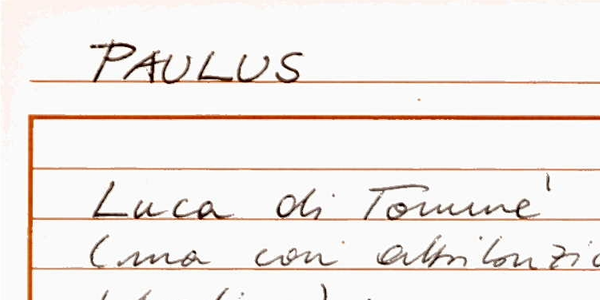 PAULUS
Luca di Tommè
(ma con attribuzio